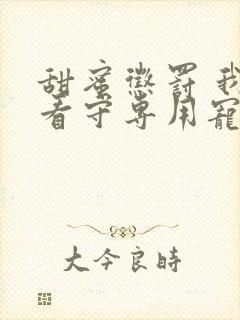 甜蜜懲罰 我
看守專用寵
大今良時